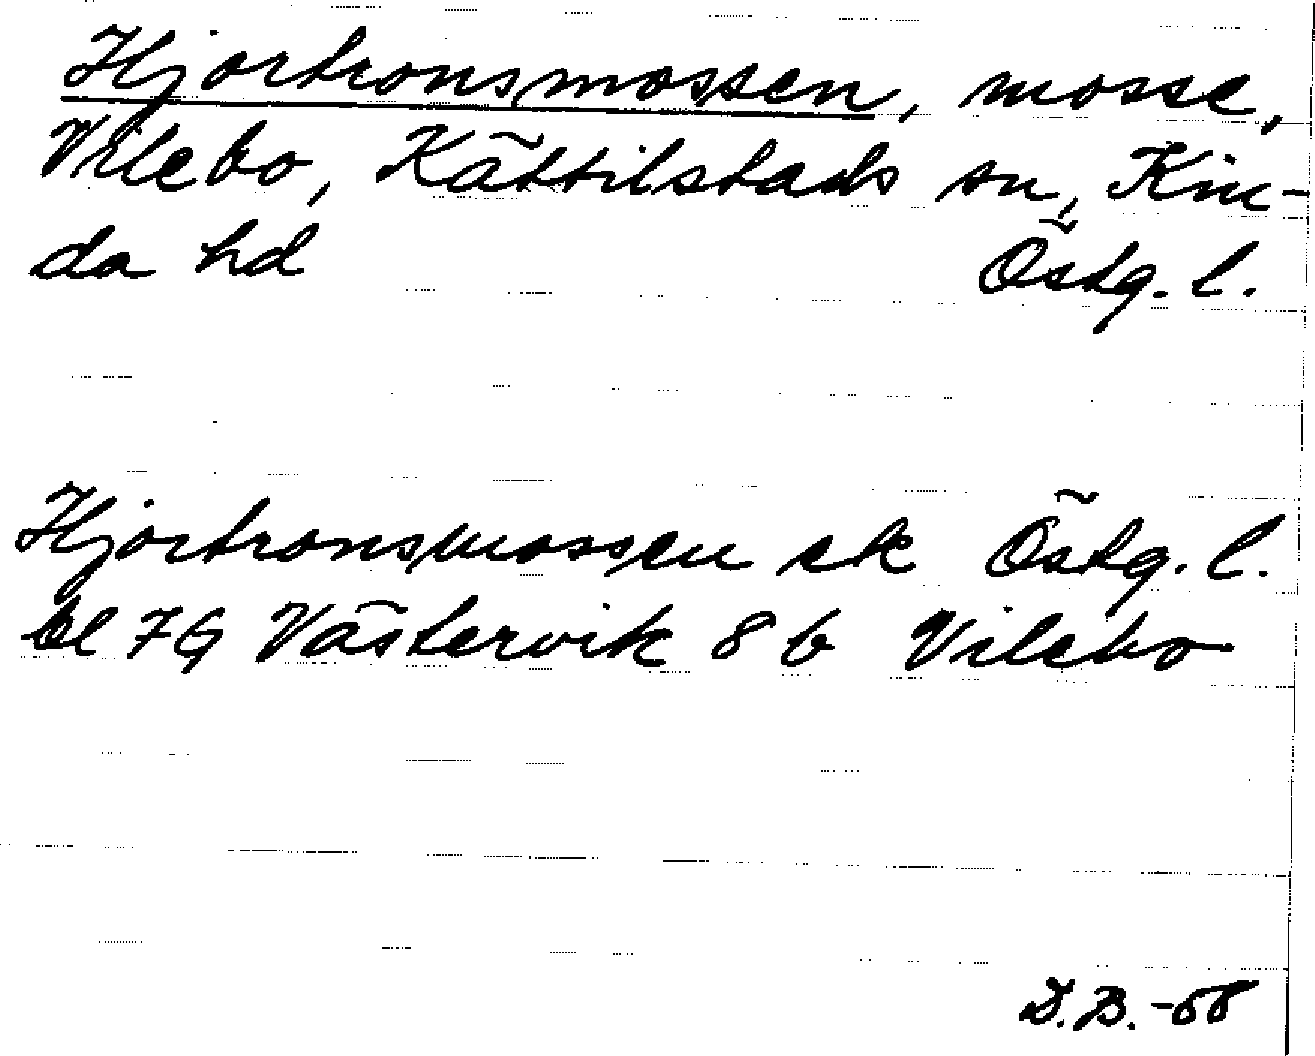 Hjortronsmossen, mosse,
Vilebo, Kättilstads sn, Kin-
da hd Östg. l.
Hjortronsmossen ek Östg. l.
bl 7G Västervik 8 b Vilebo
D.B. -68